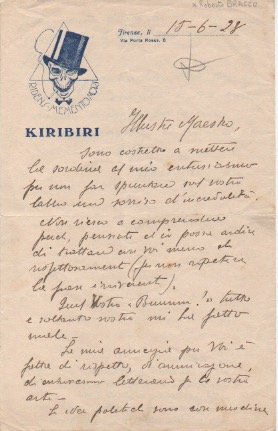 x Roberto BRACCO
RIDENS MEMENTO MORI
Firenze, li 15-6-28
Via Porta Rossa, 8
KIRIBIRI
Illustre Maestro,
Sono costretto a mettere
la sordina al mio entusiasmo
per non far spuntare sul vostro
labbro un sorriso d'incredulità
Non riesco a comprendere
perché, pensiate ch'io possa ardire
di trattare con voi meno che
rispettosamente (per non ripetere
la frase irriverente).
Quel Vostro
e soltanto vostro mi ha fatto
male.
La mia amicizia per Voi è
fatta di rispetto, d'ammirazione,
di entusiasmo letterario per la vostra
arte -
E voi potete